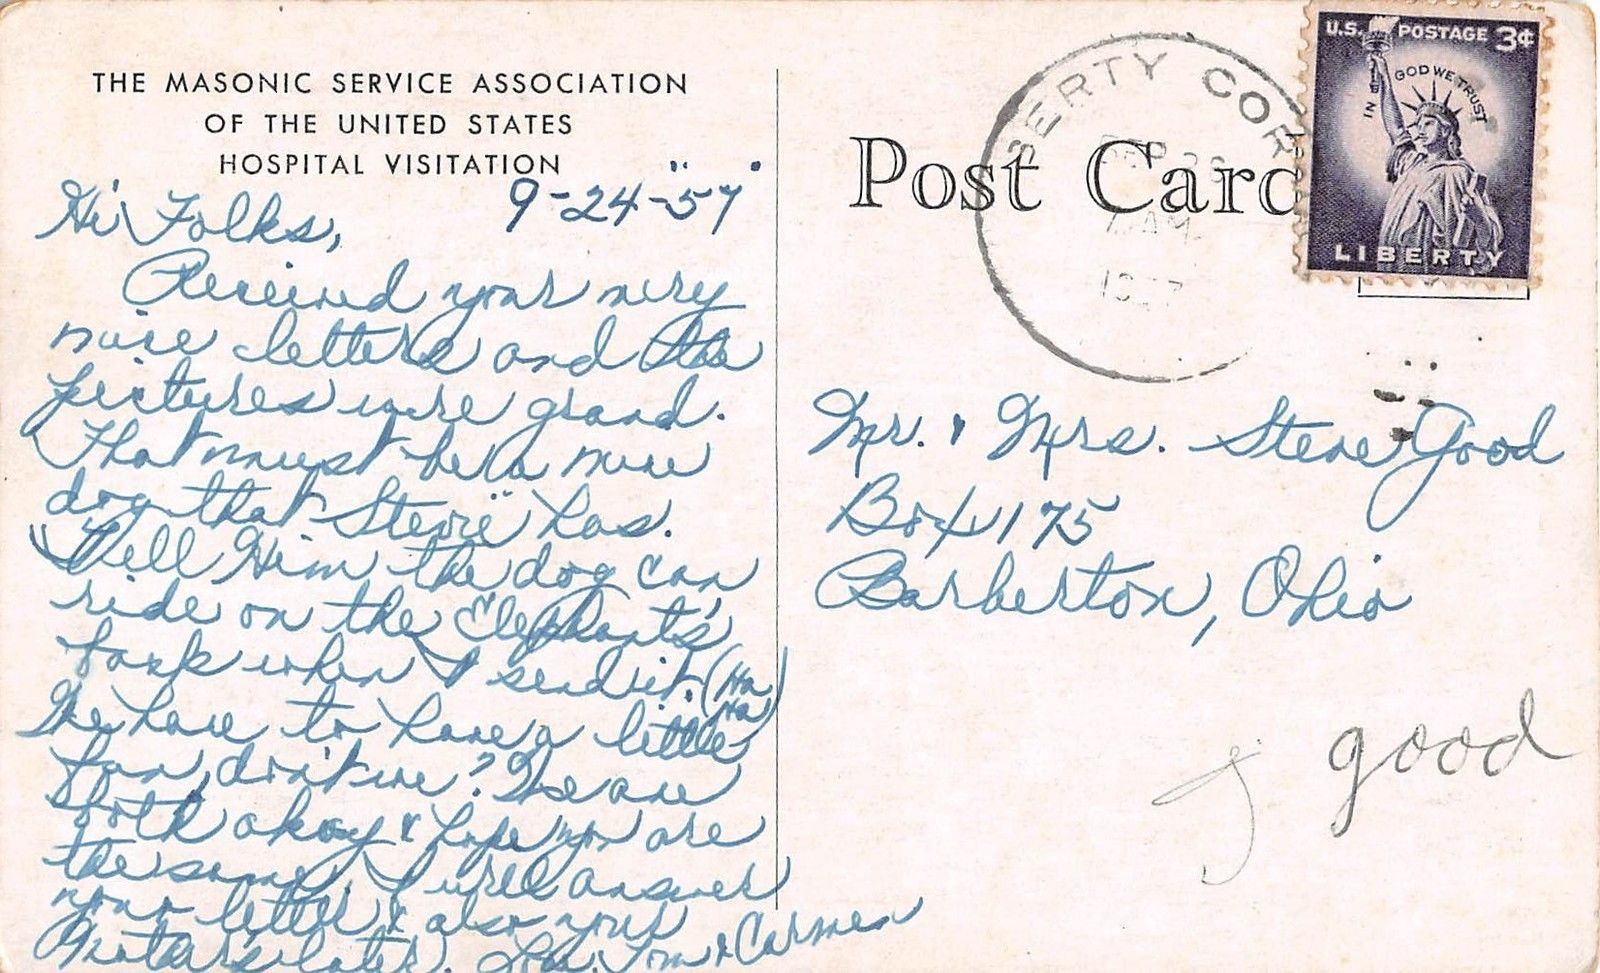 THE MASONIC SERVICE ASSOCIATION
OF THE UNITED STATES
HOSPITAL VISITATION
9-24-"57"
Hi Folks,
Received your very
nice letters and the
pictures were grand.
That must be a nice
dog that "Stevie" has.
"Tell Him the dog can
ride on the Elephants'
back when I send it. (Ha
Ha)
We have to have a little
fun, don't we? We are
both okay & hope you are
the same. I will answer
your letter & also your
later. Love, Tom & Carmen
Post Card
BERTY COR
SEP
AM
U.S. POSTAGE 3¢
IN GOD WE TRUST
LIBERTY
Mr. & Mrs. Steve Good
Box 175
Barberton, Ohio
good